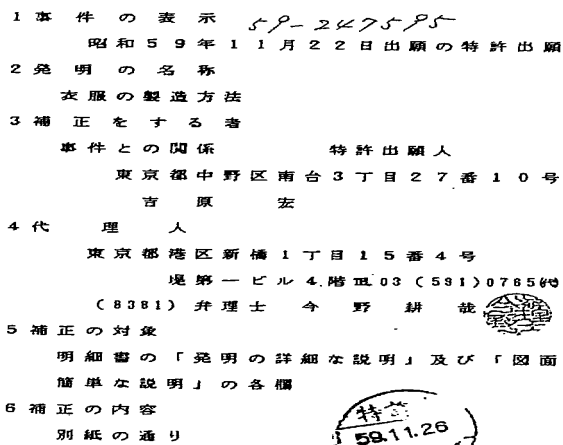 1 事件の表示 59-247595
昭和59年11月22日出願の特許出願
2 発明の名称
衣服の製造方法
3 補正をする者
事件との関係 特許出願人
東京都中野区南台3丁目27番10号
吉原 宏
4 代理人
東京都港区新橋1丁目15番4号
堤第一ビル4階 ℡03(591)0785代
(8381) 弁理士 今野耕哉
5 補正の対象
明細書の「発明の詳細な説明」及び「図面
簡単な説明」の各欄
6 補正の内容
別紙の通り
59.11.26